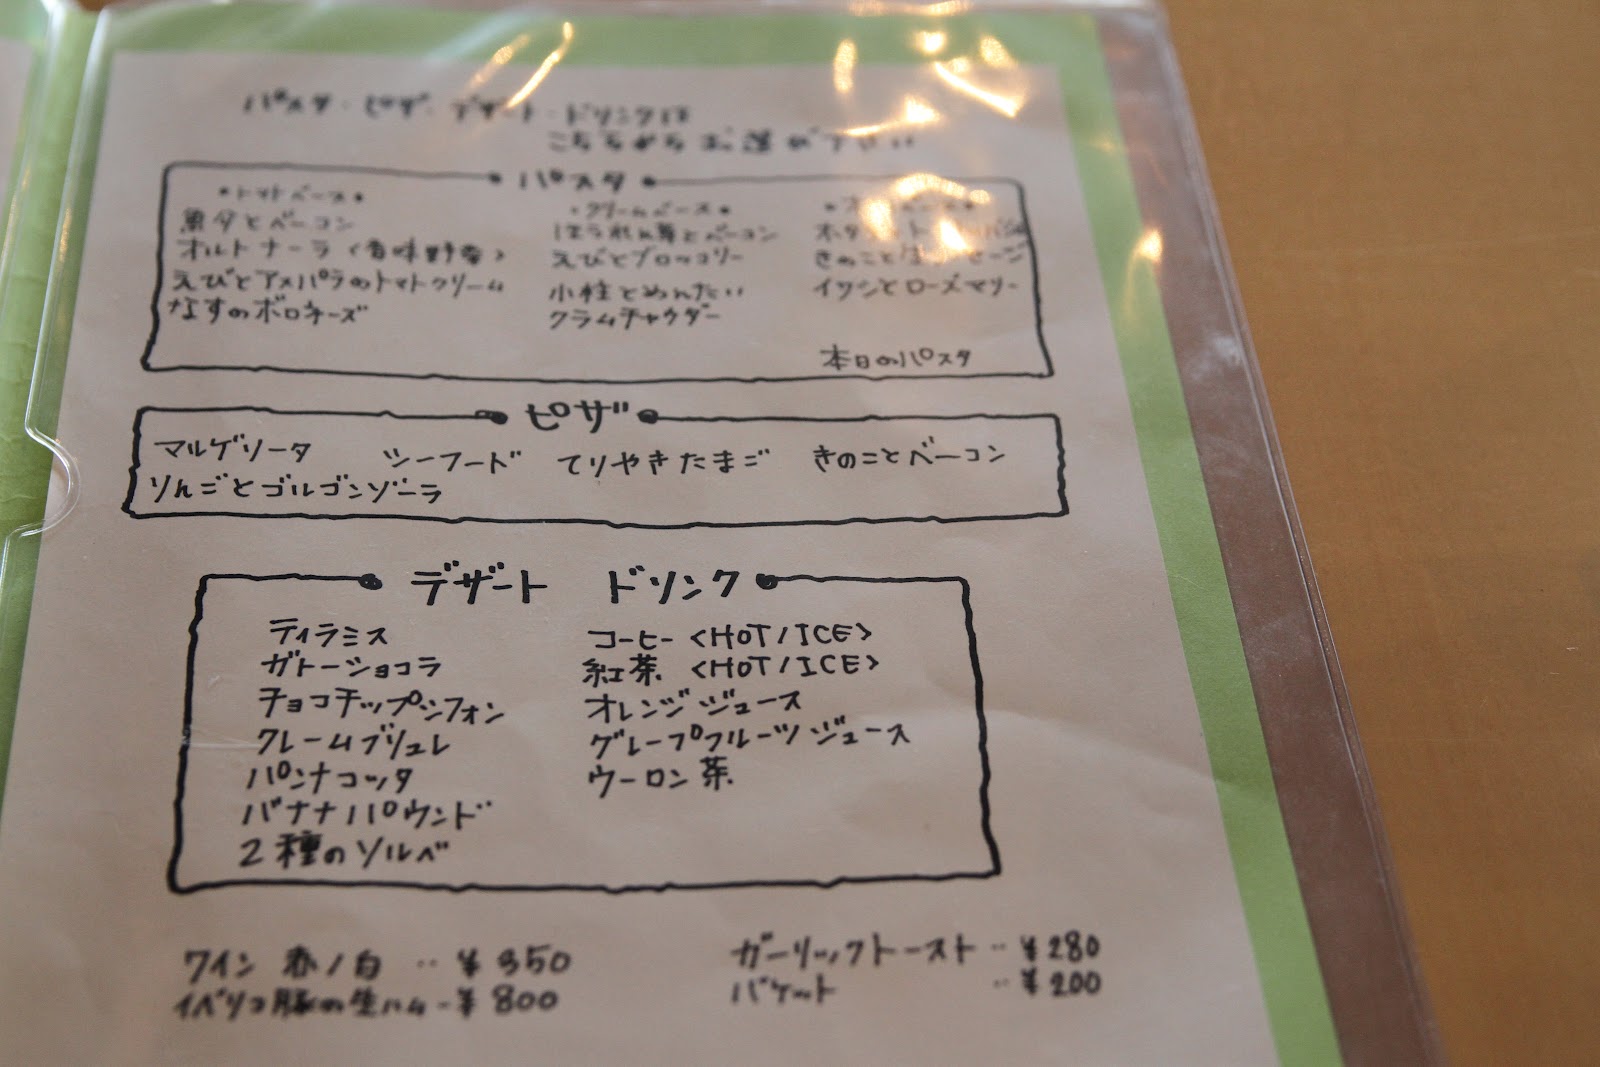 パスタ・ピザ・デザート・ドリンクは
こちらからお選び下さい
パスタ
・トマトベース・
魚介とベーコン
オルトナーラ〈香味野菜〉
えびとアスパラのトマトクリーム
なすのボロネーズ
・クリームベース・
ほうれん草とベーコン
えびとブロッコリー
小柱とめんたい
クラムチャウダー
きのこと生ソーセージ
イワシとローズマリー
本日のパスタ
ピザ
マルゲリータ シーフード てりやきたまご きのことベーコン
りんごとゴルゴンゾーラ
デザート
ティラミス
ガトーショコラ
チョコチップシフォン
クレームブリュレ
パンナコッタ
バナナパウンド
2種のソルベ
ドリンク
コーヒー 〈HOT/ICE〉
紅茶 〈HOT/ICE〉
オレンジジュース
グレープフルーツジュース
ウーロン茶
ワイン 赤/白 ‥ ¥350
イベリコ豚の生ハム‥¥800
ガーリックトースト ‥ ¥280
バケット ‥ ¥200